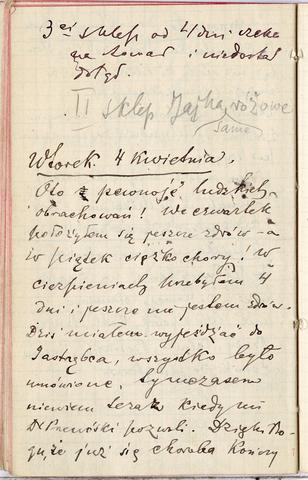 3ci sklep od 4 dni czeka
na towar i niedostał
dotąd.
II sklep Jajka różowe
same
Wtorek. 4 Kwietnia.
Oto z pewność ludzkich
obrachowań! We czwartek
położyłem się jeszcze zdrów – a
w piątek ciężko chory! w
cierpieniach przebyłem 4
dni i jeszcze nie jestem zdrów.
Dziś miałem wyjeżdżać do
Jastrzębca, wszystko było
umówione. tymczasem
niewiem teraz kiedy mi
Dr pozwoli. Dzięki Bo-
gu, że już się choroba kończy